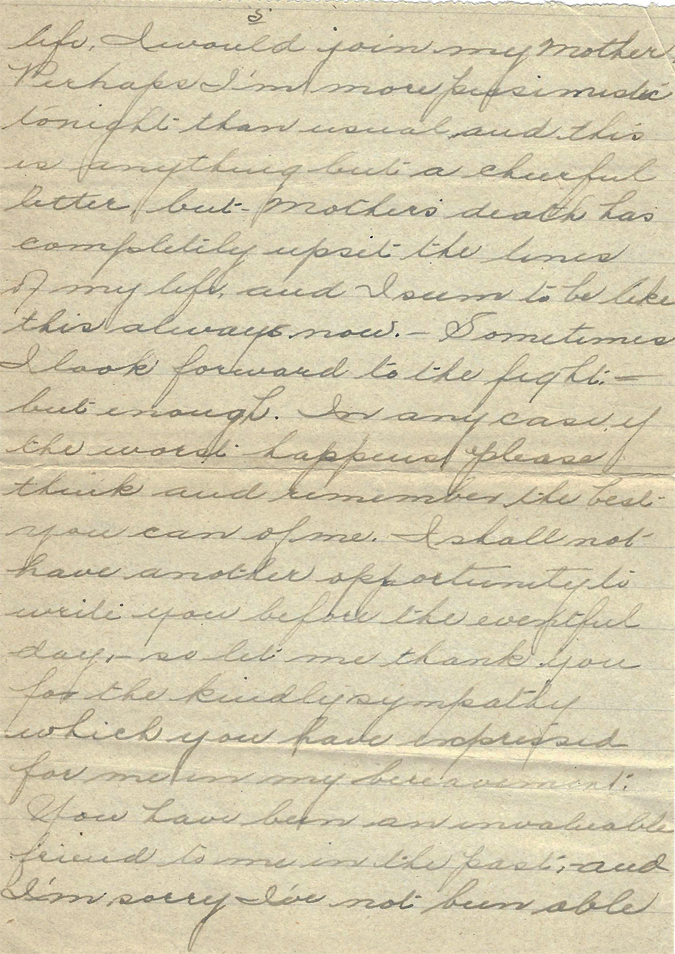 5
life, I would join my Mother.
Perhaps I'm more pessimistic
tonight than usual and this
is anything but a cheerful
letter, but Mother's death has
completely upset the lines
of my life, and I seem to be like
this always now. – Sometimes
I look forward to the fight. –
but enough. In any case if
the worst happens please
think and remember the best
you can of me. I shall not
have another opportunity to
write you before the eventful
day, – so let me thank you
for the kindly sympathy
which you have expressed
for me in my bereavement.
You have been an invaluable
friend to me in the past, – and
I'm sorry I've not been able